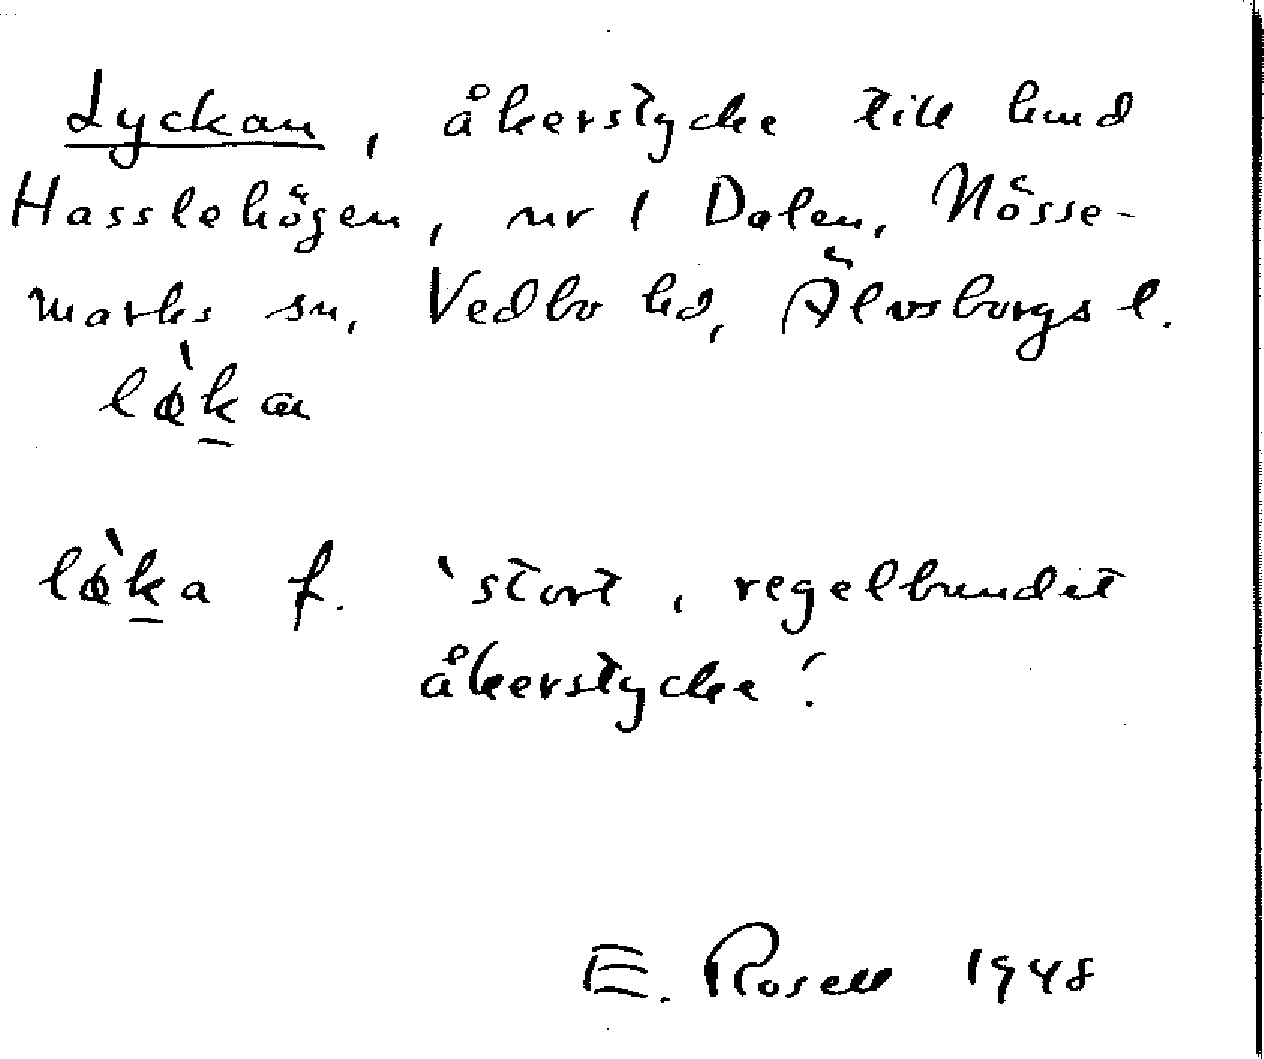 Lyckan, åkerstycke till hmd
Hasslehögen, nr 1 Dalen, Nösse-
marks sn, Vedbo hd, Älvsborgs l.
f. 'stort, regelbundet
åkerstycke'.
E. Rosell 1948